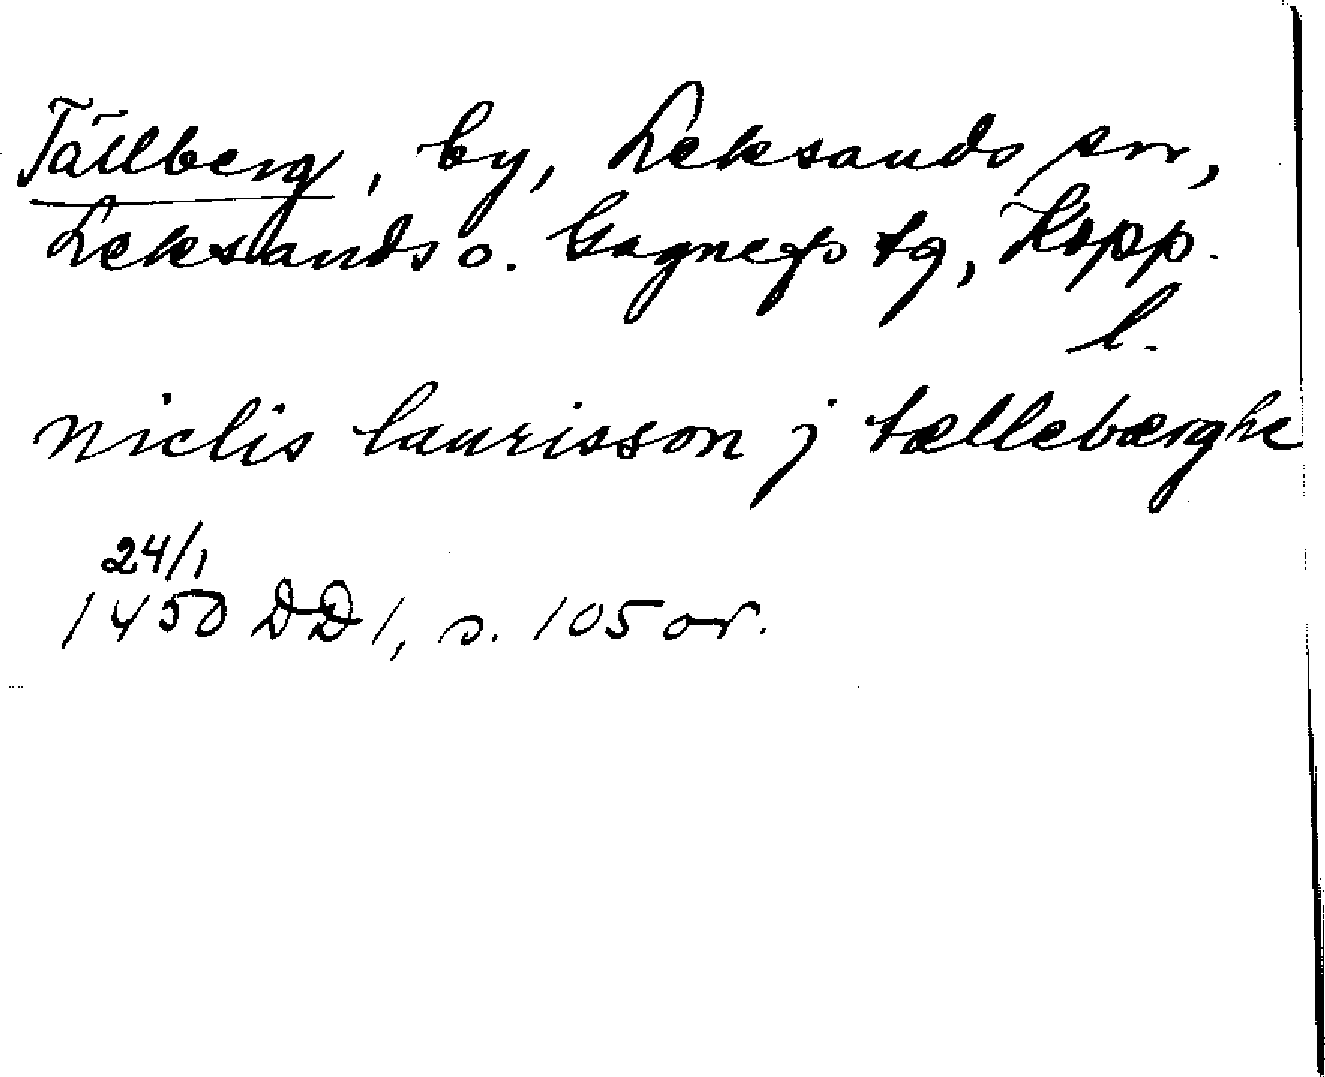 Tällberg, by, Leksands sn,
Leksands o. Gagnefs tg, Kopp.
l.
niclis laurisson j tællebærghe
24/1
1450 DD 1, s. 105 or.